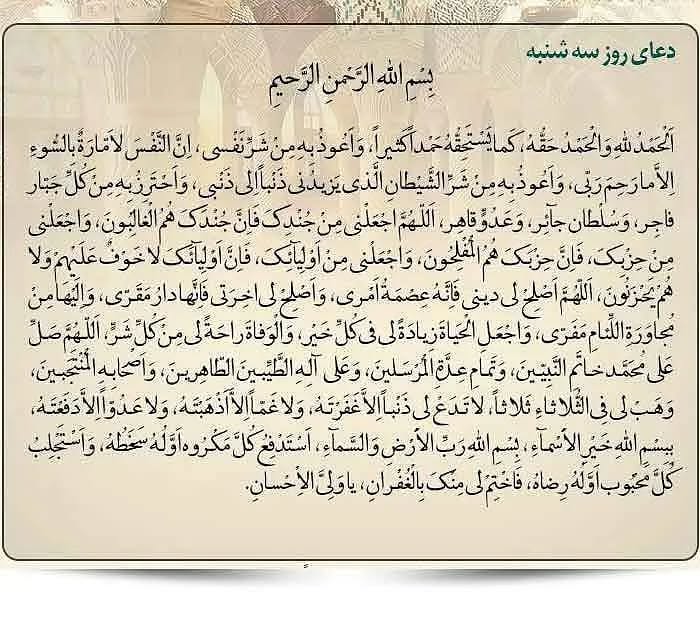 دعای روز سه شنبه
بِسْمِ اللهِ الرَّحْمنِ الرَّحيمِ
اَلْحَمْدُ للهِ وَالْحَمْدُ حَقُّهُ، كَما يَسْتَحِقُّهُ حَمْداً كَثيراً، وَاَعُوذُ بِهِ مِنْ شَرِّ نَفْسى، اِنَّ النَّفْسَ لَاَمّارَةٌ بِالسُّوءِ
اِلاَّ ما رَحِمَ رَبّى، وَاَعُوذُ بِهِ مِنْ شَرِّ الشَّيْطانِ الَّذى يَزيدُنى ذَنْباً اِلى ذَنْبى، وَاَحْتَرِزُ بِهِ مِنْ كُلِّ جَبّار
فاجِر، وَسُلْطان جائِر، وَعَدُوٍّ قاهِر، اَللّهُمَّ اجْعَلْنى مِنْ جُنْدِکَ فَاِنَّ جُنْدَکَ هُمُ الْغالِبُونَ، وَاجْعَلْنى
مِنْ حِزْبِکَ، فَاِنَّ حِزْبَکَ هُمُ الْمُفْلِحُونَ، وَاجْعَلْنى مِنْ اَوْلِيآئِکَ، فَاِنَّ اَوْلِيآئَکَ لا خَوْفٌ عَلَيْهِمْ وَلا
هُمْ يَحْزَنُونَ، اَللّهُمَّ اَصْلِحْ لى دينى فَاِنَّهُ عِصْمَةُ اَمْرى، وَاَصْلِحْ لى اخِرَتى فَاِنَّها دارُ مَقَرّى، وَاِلَيْها مِنْ
مُجاوَرَةِ اللِّئامِ مَفَرّى، وَاجْعَلِ الْحَياةَ زِيادَةً لى فى كُلِّ خَيْر، وَالْوَفاةَ راحَةً لى مِنْ كُلِّ شَرٍّ، اَللّهُمَّ صَلِّ
عَلى مُحَمَّد خاتَمِ النَّبِيّينَ، وَتَمامِ عِدَّةِ الْمُرْسَلينَ، وَعَلى آلِهِ الطَّيِّبينَ الطّاهِرينَ، وَاَصْحابِهِ الْمُنْتَجَبينَ،
وَهَبْ لى فِى الثُّلاثاءِ ثَلاثاً، لا تَدَعْ لى ذَنْباً اِلاَّ غَفَرْتَهُ، وَلا غَمّاً اِلاَّ اَذْهَبْتَهُ، وَلا عَدُوّاً اِلاَّ دَفَعْتَهُ،
بِبِسْمِ اللهِ خَيْرِ الاَْسْمآءِ، بِسْمِ اللهِ رَبِّ الاَْرْضِ وَالسَّمآءِ، اَسْتَدْفِعُ كُلَّ مَكْرُوه اَوَّلُهُ سَخَطُهُ، وَاَسْتَجْلِبُ
كُلَّ مَحْبُوب اَوَّلُهُ رِضاهُ، فَاخْتِمْ لى مِنْکَ بِالْغُفْرانِ، يا وَلِىَّ الاِْحْسانِ.